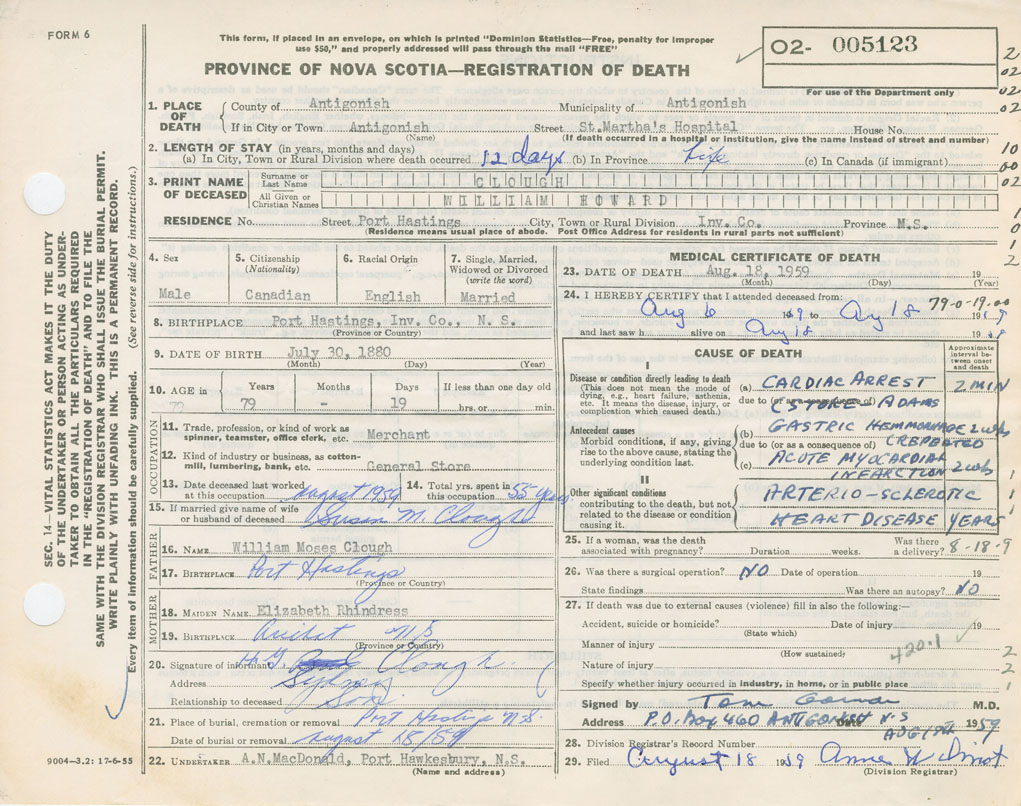 FORM 6
This form, if placed in an envelope, on which is printed "Dominion Statistics—Free, penalty for improper
use $50," and properly addressed will pass through the mail "FREE"
PROVINCE OF NOVA SCOTIA—REGISTRATION OF DEATH
02- 005123
For use of the Department only
1. PLACE OF DEATH
County of Antigonish Municipality of Antigonish
If in City or Town Antigonish Street St.Martha's Hospital House No.
(Name) (If death occurred in a hospital or institution, give the name instead of street and number)
2. LENGTH OF STAY (in years, months and days)
(a) In City, Town or Rural Division where death occurred 12 days (b) In Province Life (c) In Canada (if immigrant)
3. PRINT NAME OF DECEASED
Surname or Last Name CLOUGH
All Given or Christian Names WILLIAM HOWARD
RESIDENCE No. Street Port Hastings City, Town or Rural Division Inv. Co. Province N.S.
(Residence means usual place of abode. Post Office Address for residents in rural parts not sufficient)
4. Sex
Male
5. Citizenship (Nationality)
Canadian
6. Racial Origin
English
7. Single, Married, Widowed or Divorced (write the word)
Married
8. BIRTHPLACE Port Hastings, Inv. Co., N. S.
(Province or Country)
9. DATE OF BIRTH July 30, 1880
(Month) (Day) (Year)
10. AGE in Years Months Days If less than one day old
79 - 19 hrs. or min.
OCCUPATION
11. Trade, profession, or kind of work as spinner, teamster, office clerk, etc. Merchant
12. Kind of industry or business, as cotton-mill, lumbering, bank, etc. General Store
13. Date deceased last worked at this occupation august 1959
14. Total yrs. spent in this occupation 55 years
15. If married give name of wife or husband of deceased Susan M. Clough
FATHER
16. NAME William Moses Clough
17. BIRTHPLACE Port Hastings
(Province or Country)
MOTHER
18. MAIDEN NAME Elizabeth Rhindress
19. BIRTHPLACE Arichat N S
(Province or Country)
20. Signature of informant H. G. Clough
Address Sydney
Relationship to deceased Son
21. Place of burial, cremation or removal Port Hastings N.S.
Date of burial or removal august 18/59
22. UNDERTAKER A.N.MacDonald, Port Hawkesbury, N.S.
(Name and address)
MEDICAL CERTIFICATE OF DEATH
23. DATE OF DEATH Aug. 18, 1959 19
(Month) (Day) (Year)
24. I HEREBY CERTIFY that I attended deceased from: 79-0-19.00
Aug 6 19 to Aug 18 19
and last saw h alive on Aug 18 19
CAUSE OF DEATH
Approximate interval between onset and death
I
Disease or condition directly leading to death
(This does not mean the mode of dying, e.g., heart failure, asthenia, etc. It means the disease, injury, or complication which caused death.)
(a) CARDIAC ARREST 2 MIN
due to (or as a consequence of)
(STOKE ADAMS
Antecedent causes
Morbid conditions, if any, giving rise to the above cause, stating the underlying condition last.
(b) GASTRIC HEMMORHAGE 2 wks
due to (or as a consequence of) (REPEATED
(c) ACUTE MYOCARDIAL
INFARCTION 2 wks
II
Other significant conditions
contributing to the death, but not related to the disease or condition causing it.
ARTERIO-SCLEROTIC
HEART DISEASE YEARS
25. If a woman, was the death associated with pregnancy? Duration weeks. Was there a delivery? 8-18-9
26. Was there a surgical operation? NO Date of operation 19
State findings Was there an autopsy? NO
27. If death was due to external causes (violence) fill in also the following:—
Accident, suicide or homicide? Date of injury 19
(State which)
Manner of injury 420.1
(How sustained)
Nature of injury
Specify whether injury occurred in industry, in home, or in public place
Signed by Tom M.D.
Address P.O. Box 460 ANTIGONISH N.S Date AUG 18TH 1959
28. Division Registrar's Record Number
29. Filed August 18 1959 Anne
(Division Registrar)
SEC. 14—VITAL STATISTICS ACT MAKES IT THE DUTY
OF THE UNDERTAKER OR PERSON ACTING AS UNDER-
TAKER TO OBTAIN ALL THE PARTICULARS REQUIRED
IN THE "REGISTRATION OF DEATH" AND TO FILE THE
SAME WITH THE DIVISION REGISTRAR WHO SHALL ISSUE THE BURIAL PERMIT.
WRITE PLAINLY WITH UNFADING INK. THIS IS A PERMANENT RECORD.
Every item of information should be carefully supplied. (See reverse side for instructions.)
9004—3.2: 17-6-55
2
02
02
10
00
02
1
0
1
2
1
1
1
2
2
1